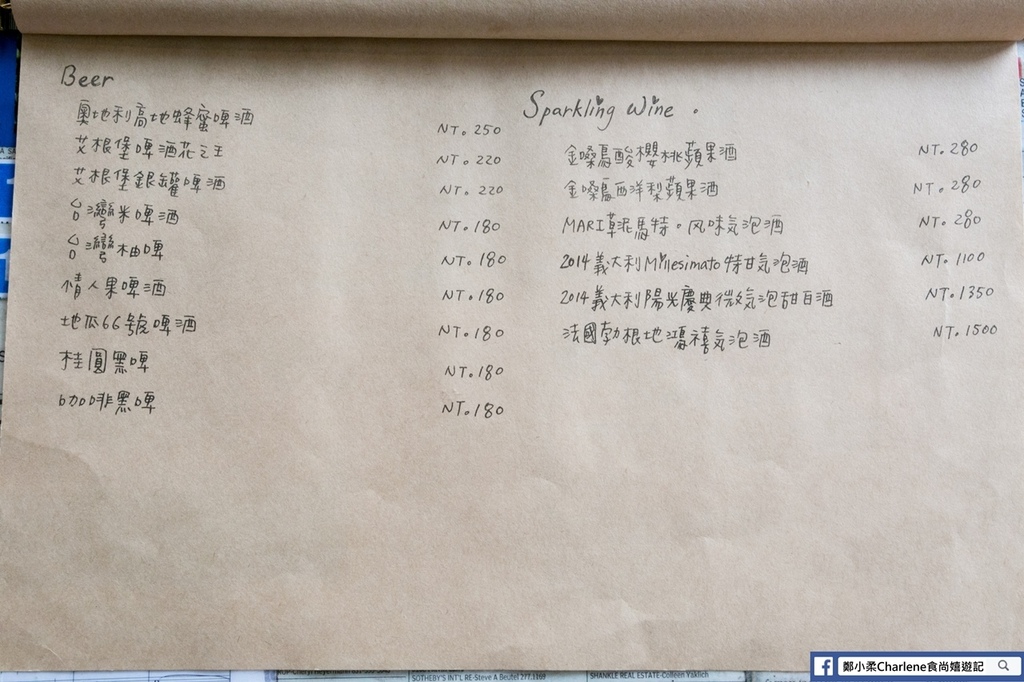 Beer
奧地利高地蜂蜜啤酒 NT. 250
艾根堡啤酒花之王 NT. 220
艾根堡銀罐啤酒 NT. 220
台灣米啤酒 NT. 180
台灣柚啤 NT. 180
情人果啤酒 NT. 180
地瓜66號啤酒 NT. 180
桂圓黑啤 NT. 180
咖啡黑啤 NT. 180
Sparkling Wine .
金嗓鳥酸櫻桃蘋果酒 NT. 280
金嗓鳥西洋梨蘋果酒 NT. 280
MARI草泥馬特。风味気泡酒 NT. 280
2014義大利Millesimato特甘気泡酒 NT. 1100
2014義大利陽光慶典微気泡甜白酒 NT. 1350
法國勃根地鴻禧気泡酒 NT. 1500
SOTHEBY'S INT'L RE-Steve A Beutel 277.1169
SHANKLE REAL ESTATE-Colleen Yaklich
鄭小柔Charlene食尚嬉遊記